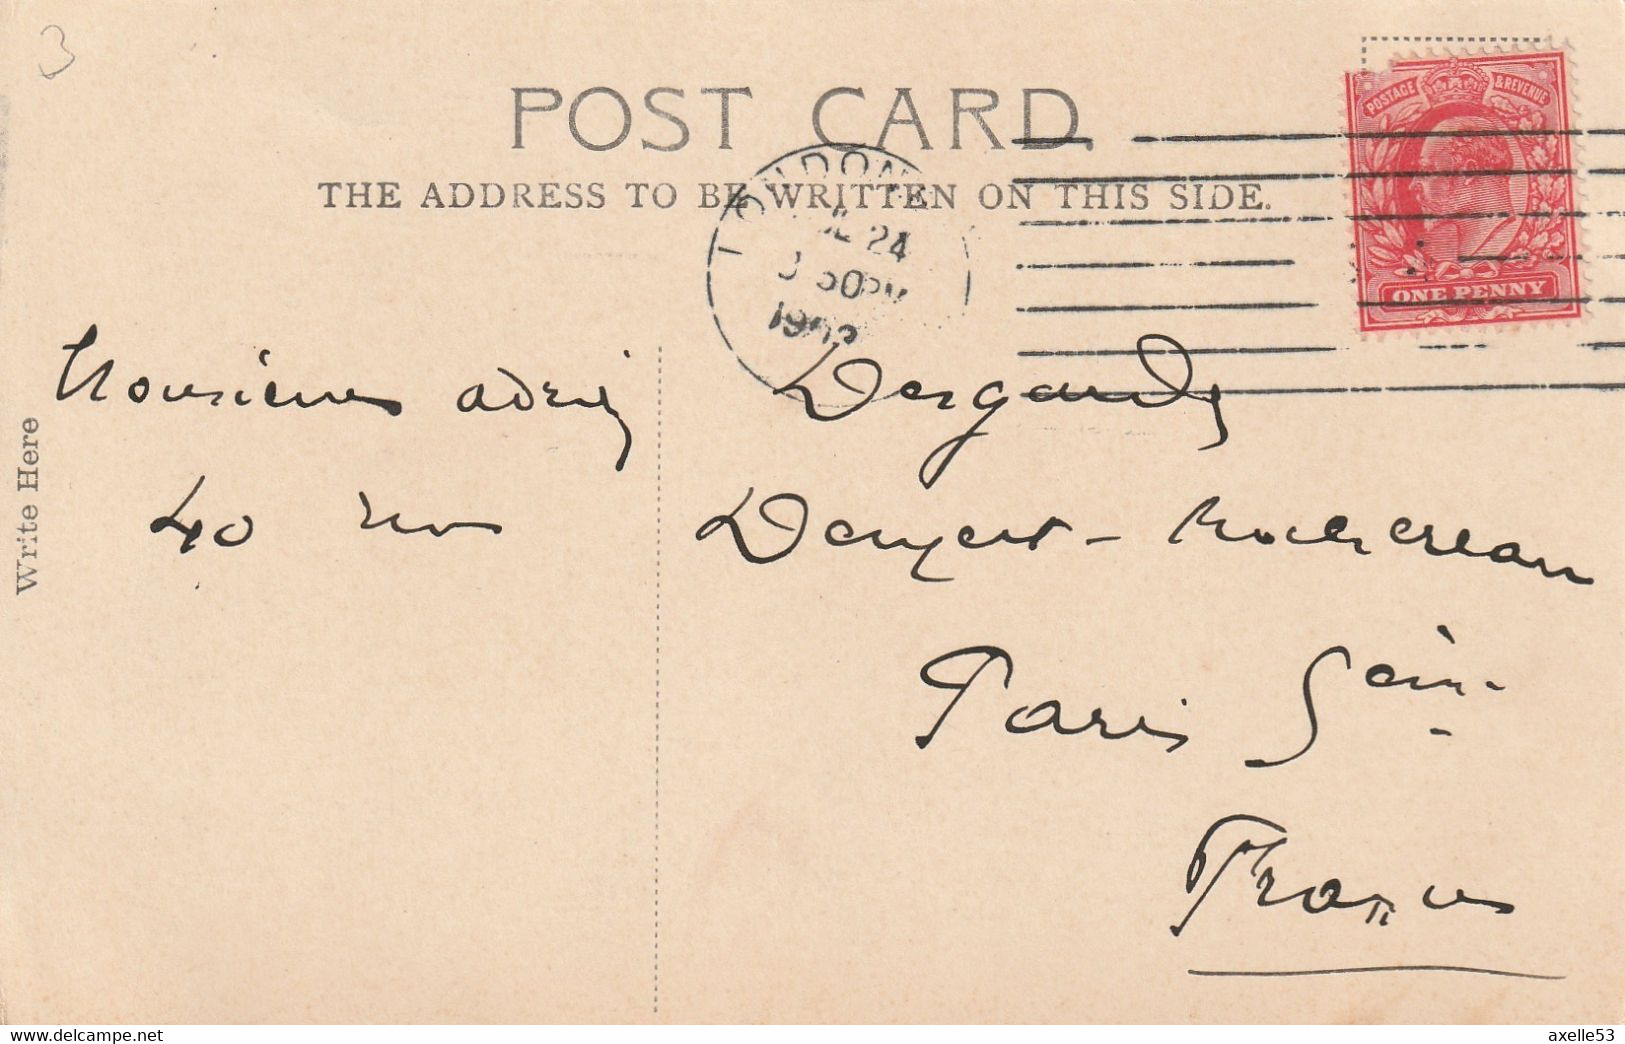 3
POST CARD
THE ADDRESS TO BE WRITTEN ON THIS SIDE.
POSTAGE & REVENUE
ONE PENNY
LONDON
JL 24
30PM
Write Here
Monsieur Adrien Desgardes
40 rue Denfert-Rochereau
Paris Seine
France
www.delcampe.net
axelle53